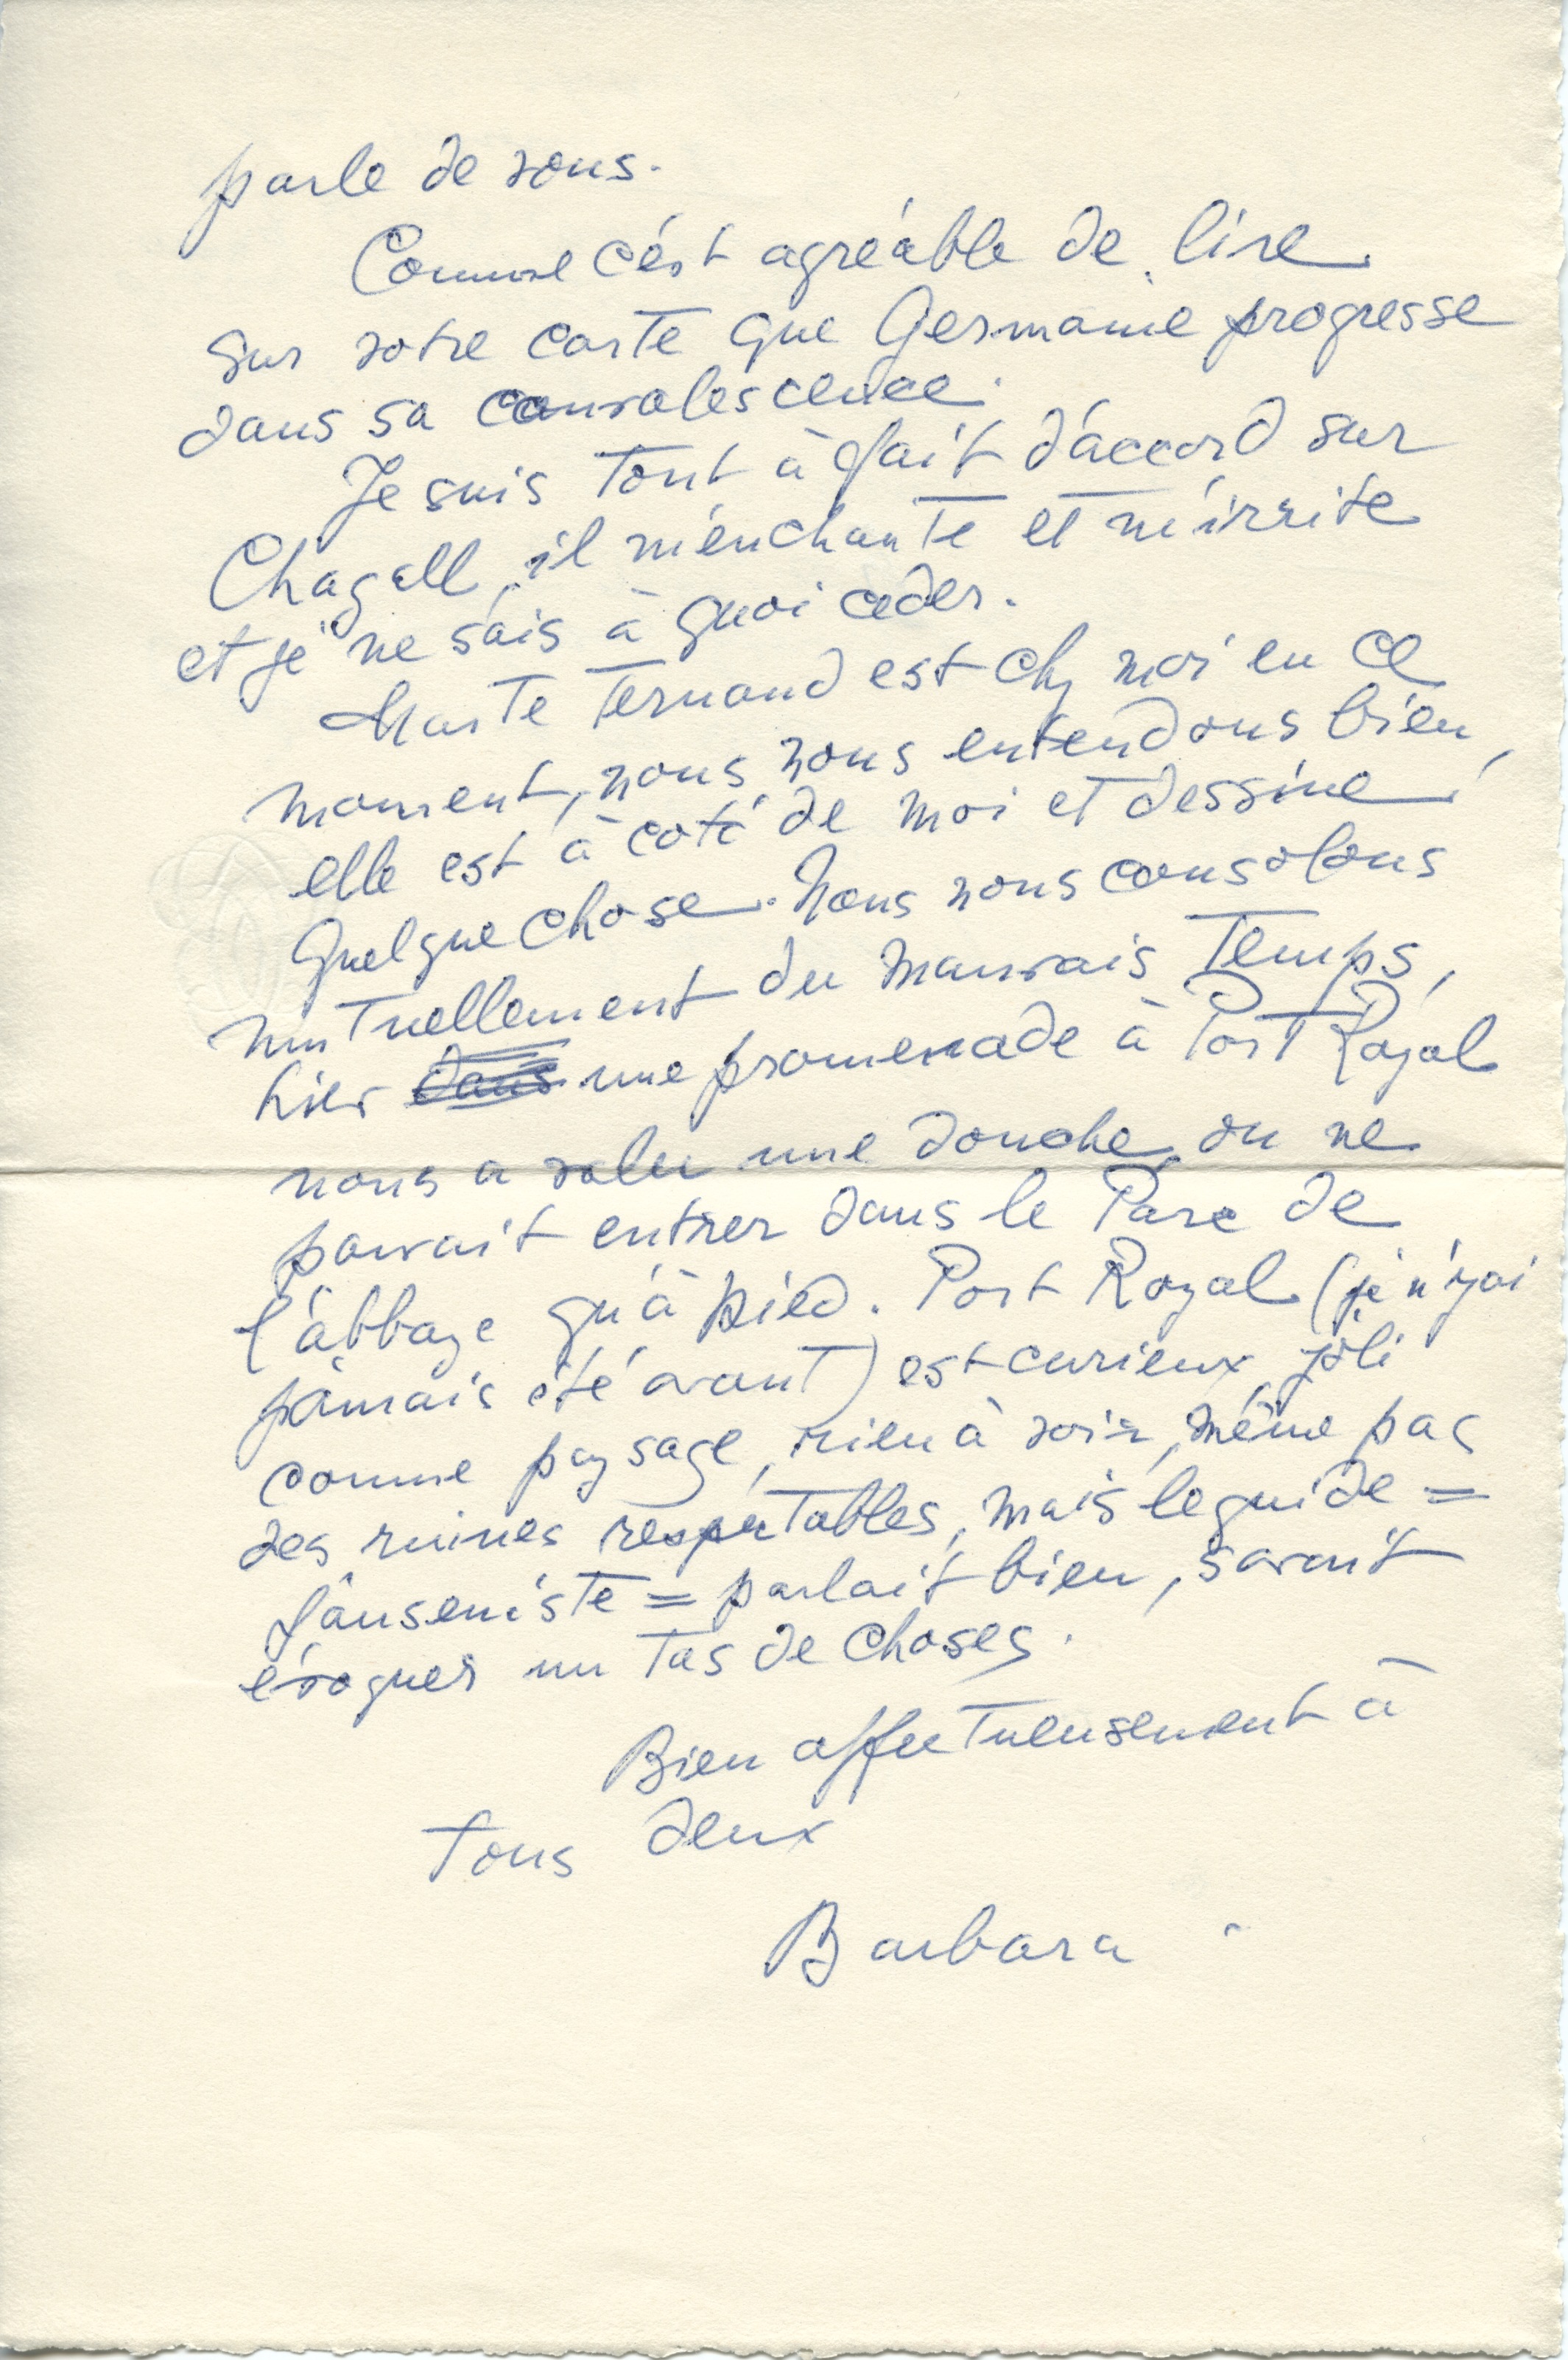 parle de vous.
Comme c'est agréable de lire
sur votre carte que Germaine progresse
dans sa convalescence.
Je suis tout à fait d'accord sur
Chagall, il m'enchante et m'irrite
et je ne sais à quoi céder.
Marte Ternand est chez moi en ce
moment, nous nous entendons bien,
elle est à coté de moi et dessine
quelque chose. Nous nous consolons
mutuellement du mauvais temps,
hier dans une promenade à Port Royal
nous a valu une douche, on ne
pouvait entrer dans le Parc de
l'abbaye qu'à pied. Port Royal (je n'y ai
jamais été avant) est curieux, joli
comme paysage, rien à voir, même pas
des ruines respectables, mais le guide =
Janseniste = parlait bien, savait
évoquer un tas de choses.
Bien affectueusement à
tous deux
Barbara